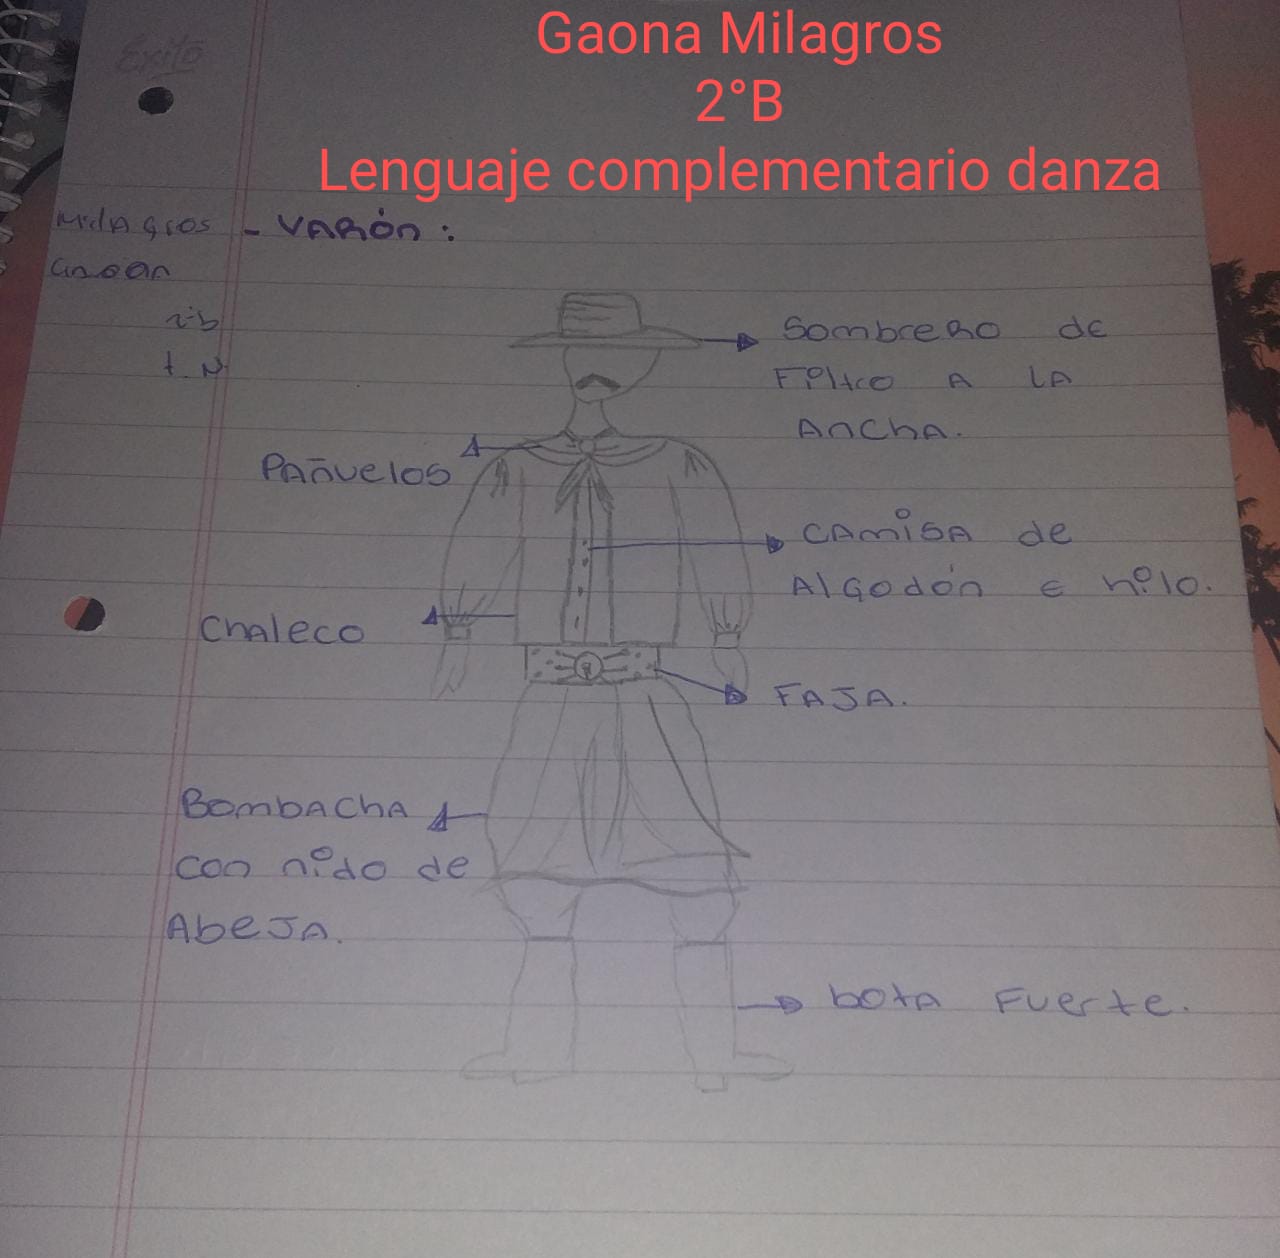 Gaona Milagros
2°B
Lenguaje complementario danza
Exito
Milagros
- VARÓN:
Gaona
2·b
t.N
Sombrero de
Filtro A LA
Ancha.
Pañuelos
CAMISA de
Algodón e hilo.
Chaleco
FAJA.
Bombacha
con nido de
Abeja.
bota Fuerte.